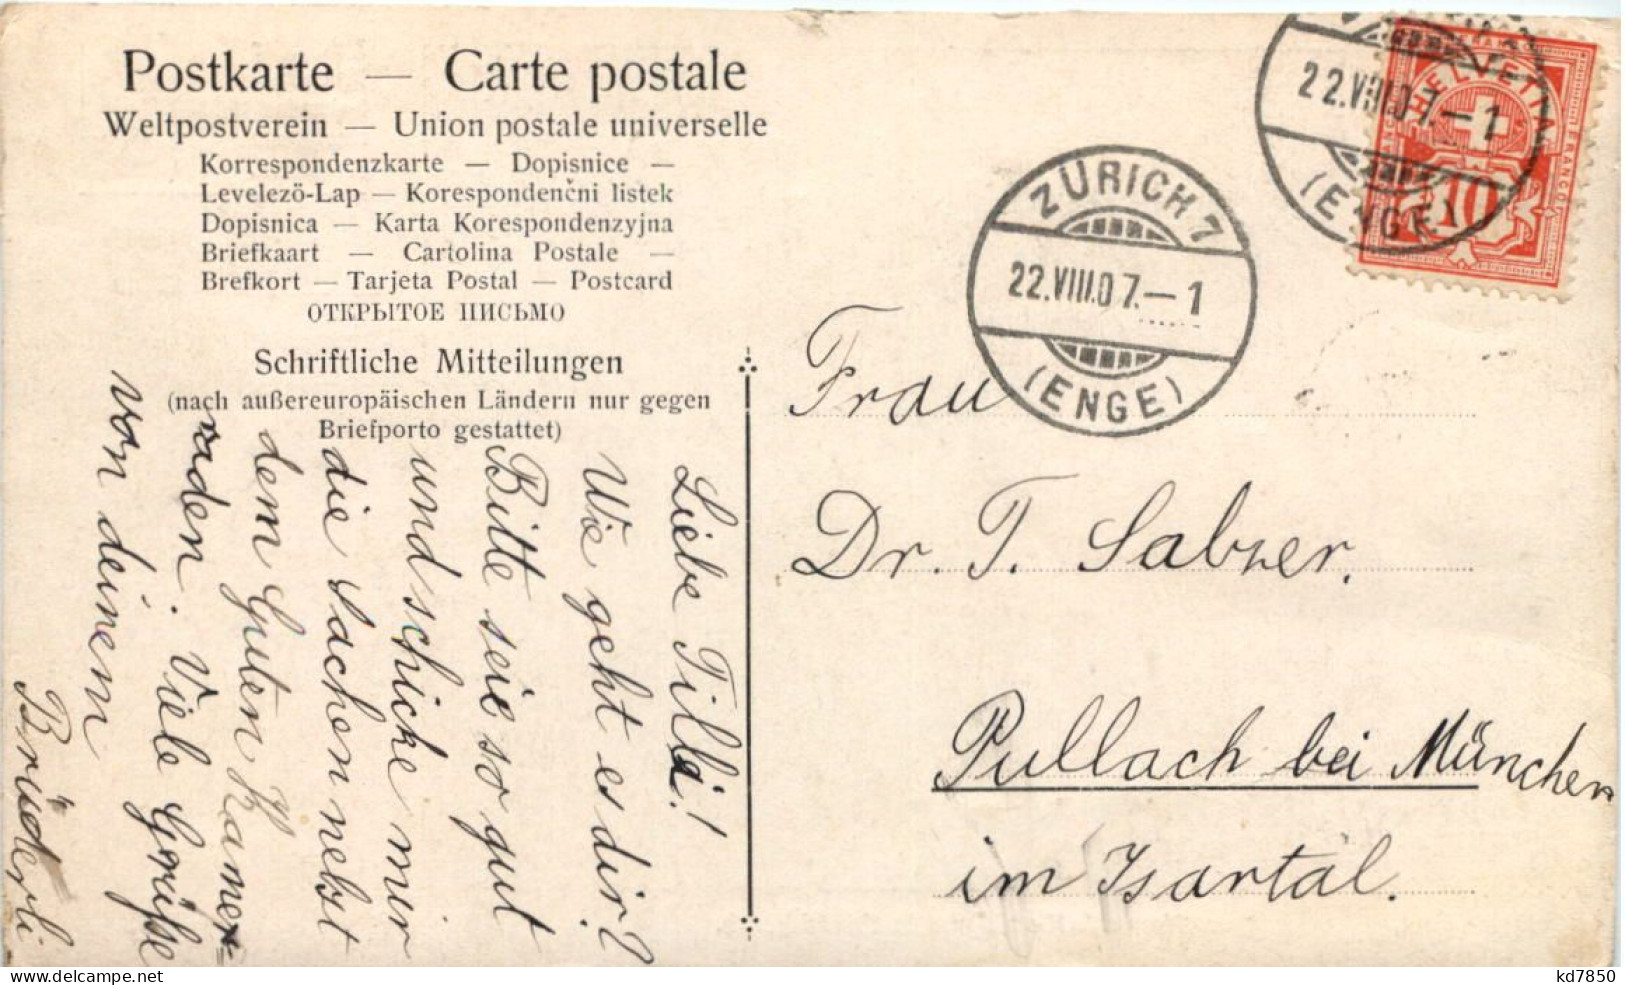 Postkarte — Carte postale
Weltpostverein — Union postale universelle
Korrespondenzkarte — Dopisnice —
Levelezö-Lap — Korespondenčni listek
Dopisnica — Karta Korespondenzyjna
Briefkaart — Cartolina Postale —
Brefkort — Tarjeta Postal — Postcard
ОТКРЫТОЕ ПИСЬМО
Schriftliche Mitteilungen
(nach außereuropäischen Ländern nur gegen
Briefporto gestattet)
Liebe Tilli!
Wie geht es dir?
Bitte seie so gut
und schicke mir
die Sachen nebst
dem Guten Kame-
raden. Viele Grüsse
von deinem
Brüderli
ZÜRICH 7
22.VIII.07.—1
(ENGE)
22.VIII.07.—1
(ENGE)
HELVETIA
FRANCO
10
Frau
Dr. T. Salzer.
Pullach bei München
im Isartal.
kd7850